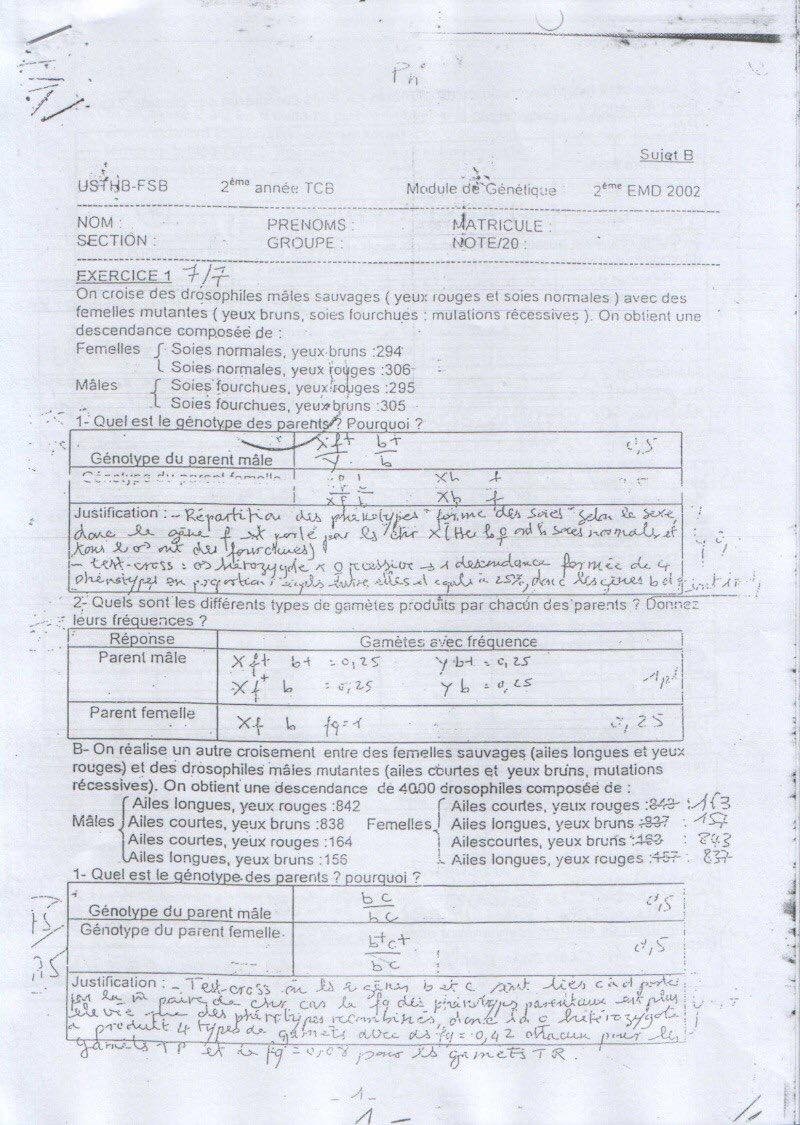 Sujet B
USTHB-FSB 2ème année TCB Module de Génétique 2ème EMD 2002
NOM : PRENOMS : MATRICULE :
SECTION : GROUPE : NOTE/20 :
EXERCICE 1 7/7
On croise des drosophiles mâles sauvages ( yeux rouges et soies normales ) avec des
femelles mutantes ( yeux bruns, soies fourchues : mutations récessives ). On obtient une
descendance composée de :
Femelles { Soies normales, yeux bruns :294
Soies normales, yeux rouges :306
Mâles { Soies fourchues, yeux rouges :295
Soies fourchues, yeux bruns :305
1- Quel est le génotype des parents ? Pourquoi ?
Xf+ b+ 0,5
Génotype du parent mâle Y b
Génotype du parent femelle Xb f
Xf Xb f
Justification : - Répartition des phénotypes "forme des soies" selon le sexe
donc le gène f est porté par le chr X (
tous les ♂ ont des fourchues)
- test-cross : ♂ hétérozygote x ♀ récessive → 1 descendance formée de 4
phénotypes en proportions entre elles et égale à 25%, donc les gènes b et
2- Quels sont les différents types de gamètes produits par chacun des parents ? Donnez
leurs fréquences ?
Réponse Gamètes avec fréquence
Parent mâle Xf+ b+ = 0,25 Y b+ = 0,25
Xf+ b = 0,25 Y b = 0,25 1pt
Parent femelle Xf b fq=1 0,25
B- On réalise un autre croisement entre des femelles sauvages (ailes longues et yeux
rouges) et des drosophiles mâles mutantes (ailes courtes et yeux bruins, mutations
récessives). On obtient une descendance de 4000 drosophiles composée de :
Ailes longues, yeux rouges :842 Ailes courtes, yeux rouges :843 : 163
Mâles { Ailes courtes, yeux bruns :838 Femelles { Ailes longues, yeux bruns :837 : 157
Ailes courtes, yeux rouges :164 Ailescourtes, yeux bruns :163 : 843
Ailes longues, yeux bruns :156 Ailes longues, yeux rouges :157 : 837
1- Quel est le génotype des parents ? pourquoi ?
bc
Génotype du parent mâle bc 0,5
Génotype du parent femelle b+c+ 0,5
bc
Justification : - Test-cross où les 2 gènes b et c sont liés càd portés
par la m paire de chr car la fq des phénotypes parentaux est plus
élevée que des phénotypes recombinés, donc la ♀ hétérozygote
a produit 4 types de gamets avec des fq = 0,42 chacun pour les
gamets TP et de fq = 0,08 pour les gamets TR.
- 1 -